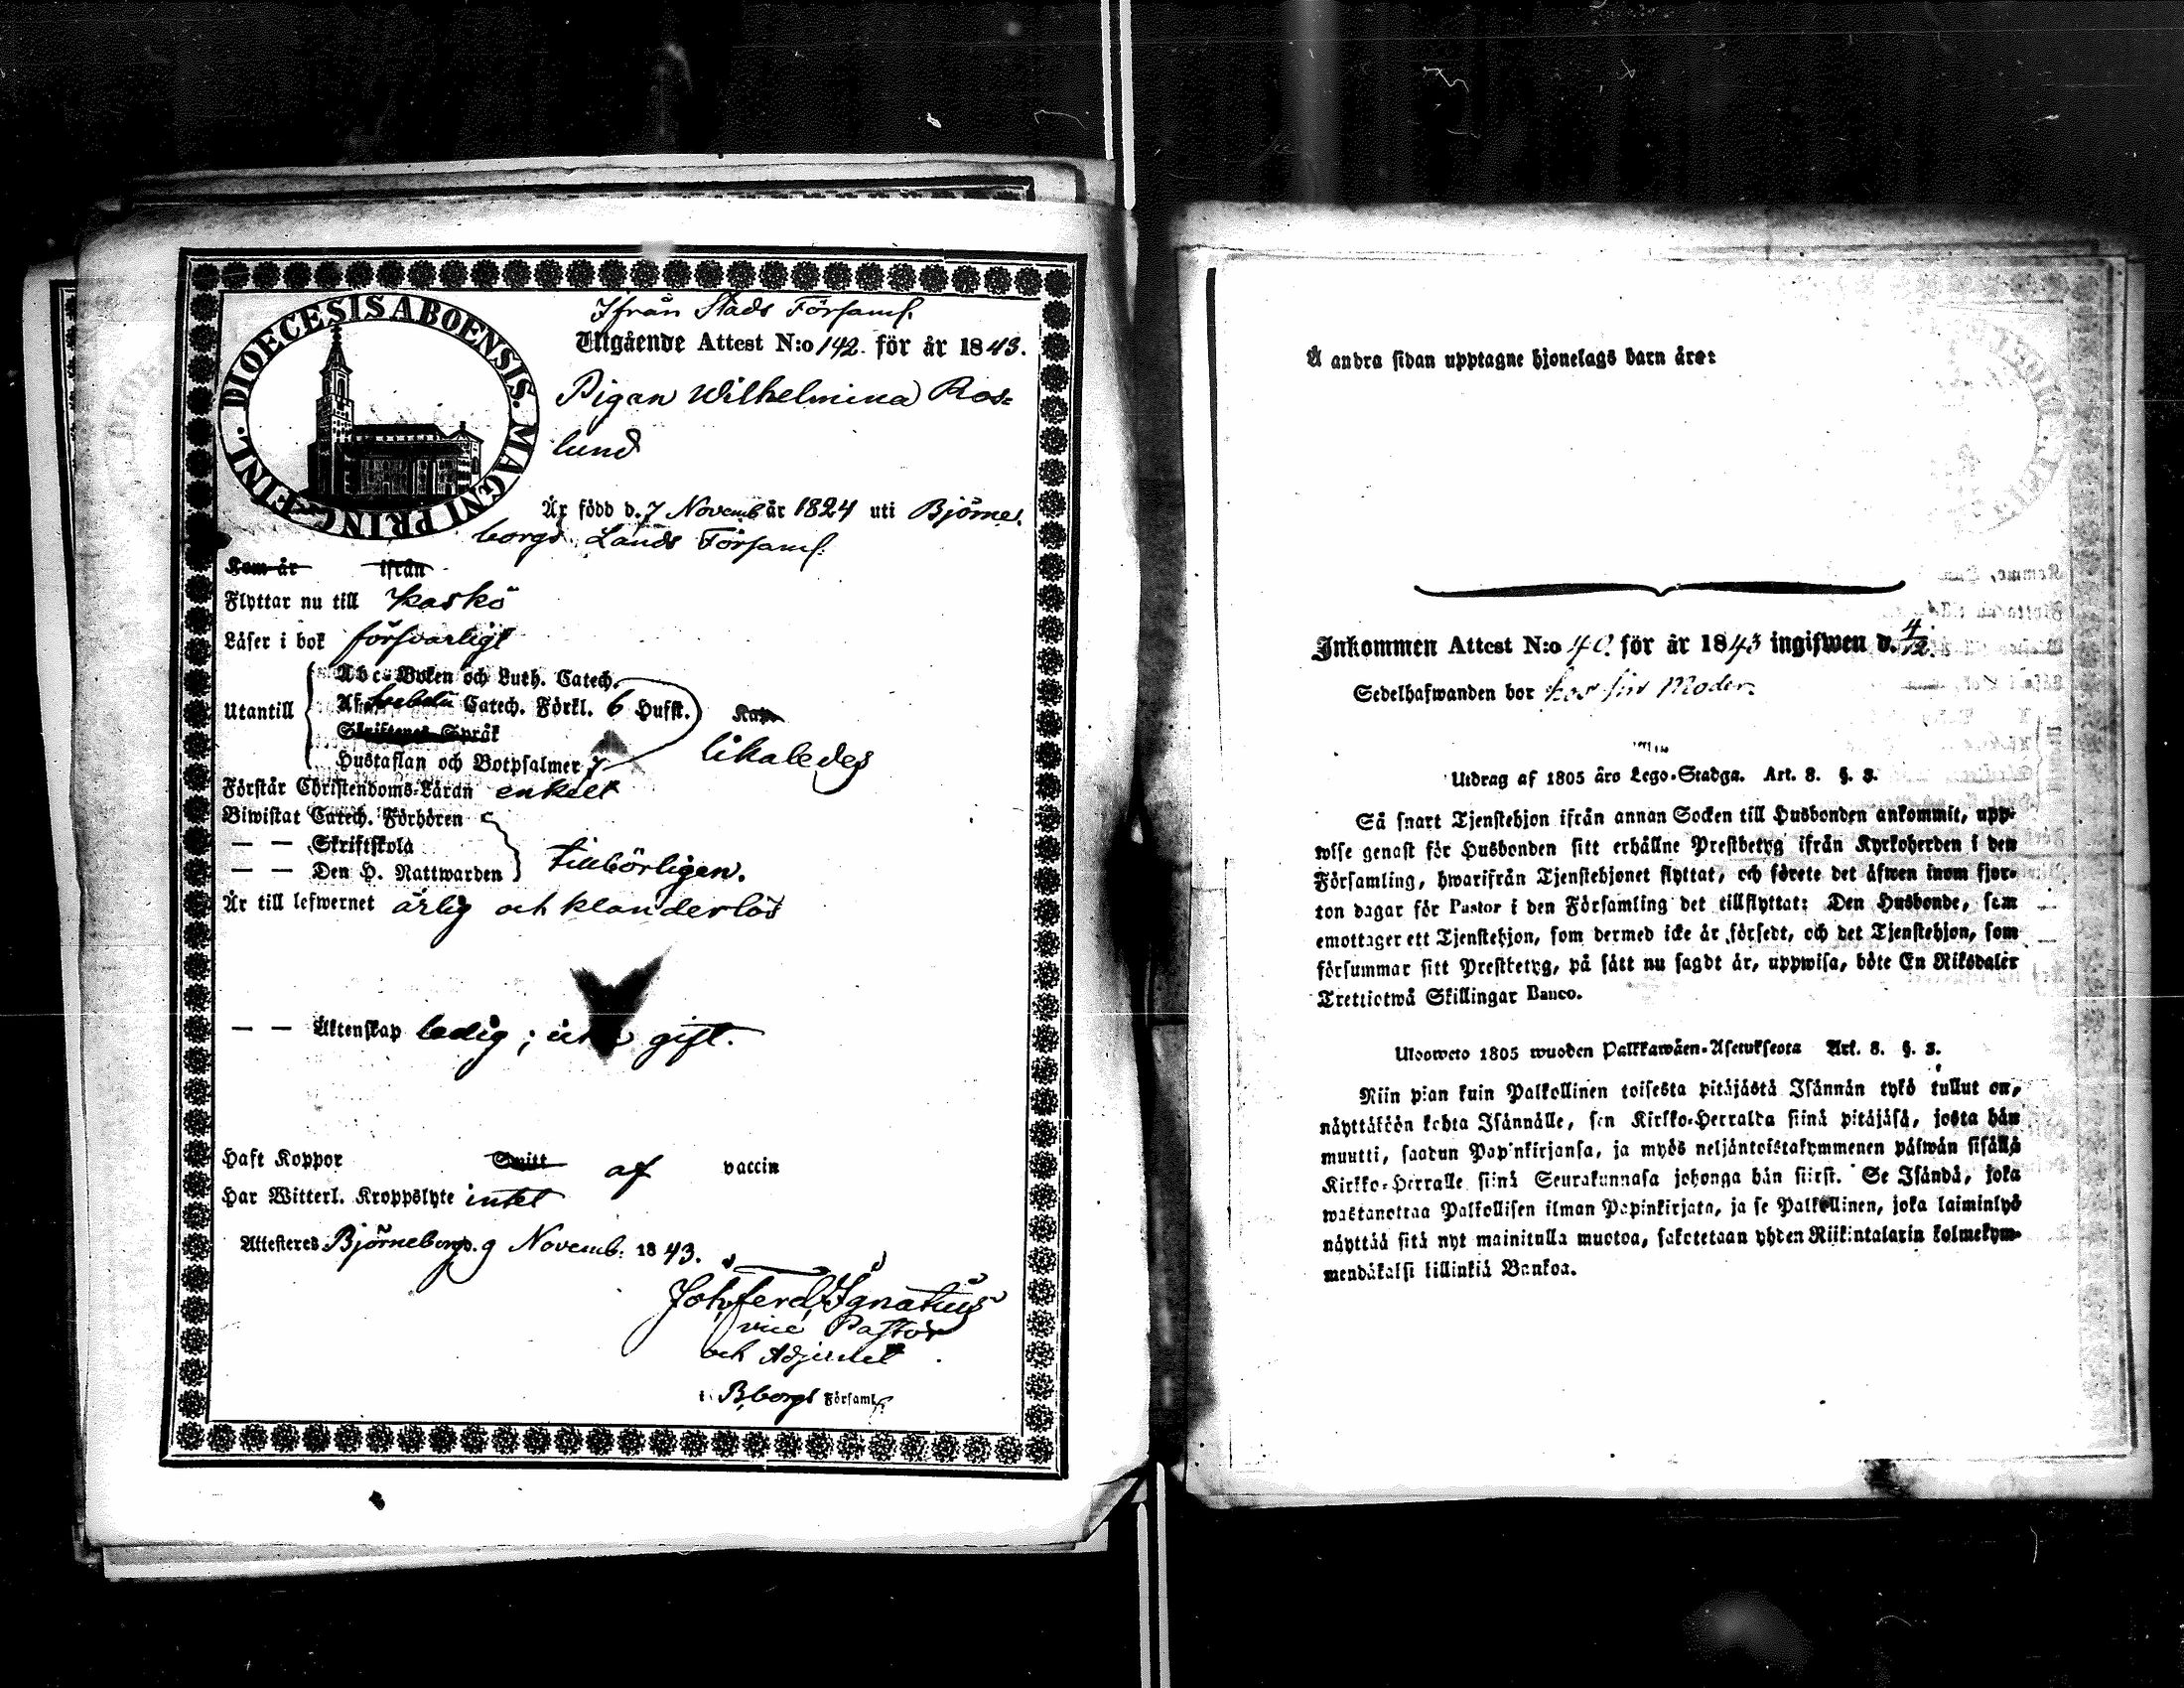 DIOECESIS ABOENSIS. MAGNI PRINC. FINL.
Ifrån Stads Församl.
Utgående Attest N:o 142. för år 1843.
Pigan Wilhelmina Ros=
lund
Är född d. 7 Novemb. år 1824 uti Björne.
borgs Lands Församl.
Kom år ifrån
Flyttar nu till Kaskö
Läser i bok försvarligt
Utantill
Abc-Boken och Luth. Catech.
Catech. Förkl. 6 Hufst.
Skriftenes Språk
Hustaflan och Botpsalmer 7
likaledes
Förstår Christendoms-Läran enkelt
Biwistat Catech. Förhören
— — Skriftskola
— — Den H. Nattwarden
tillbörligen.
Är till lefwernet ärlig och klanderlös
— — Äktenskap ledig; gift.
Haft Koppor Switt af vaccin
Har Witterl. Kroppslyte intet
Attesteres Björneborg d. 9 Novemb. 1843.
Joh. Ferd. Ignatius
vice Pastor
och Adjunct
i B,borgs Församl.
Å andra sidan upptagne hjonelags barn äro:
Inkommen Attest N:o 40. för år 1843 ingifwen d. 4/12.
Sedelhafwanden bor hos sin Moder.
Utdrag af 1805 års Lego-Stadga. Art. 8. §. 3.
Så snart Tjenstehjon ifrån annan Socken till Husbonden ankommit, upp-
wise genast för Husbonden sitt erhållne Prestbetyg ifrån Kyrkoherden i den
Församling, hwarifrån Tjenstehjonet flyttat, och förete det äfwen inom fjor-
ton dagar för Pastor i den Församling det tillflyttat: Den Husbonde, som
emottager ett Tjenstehjon, som dermed icke är försedt, och det Tjenstehjon, som
försummar sitt Prestbetyg, på sätt nu sagdt är, uppwisa, böte En Riksdaler
Trettiotwå Skillingar Banco.
Ulosweto 1805 wuoden Palkkawäen-Asetuksesta Art. 8. §. 3.
Niin pian kuin Palkollinen toisesta pitäjästä Isännän tykö tullut on,
näyttäköön kohta Isännälle, sen Kirkko-Herralta siinä pitäjäsä, josta hän
muutti, saadun Papinkirjansa, ja myös neljäntoistakymmenen päiwän sisällä
Kirkko-Herralle siinä Seurakunnasa johonga hän siirst. Se Isändä, joka
wastanottaa Palkollisen ilman Papinkirjata, ja se Palkollinen, joka laiminlyö
näyttää sitä nyt mainitulla muotoa, sakotetaan yhden Riikintalarin kolmekym-
mendäkaksi killinkiä Bankoa.